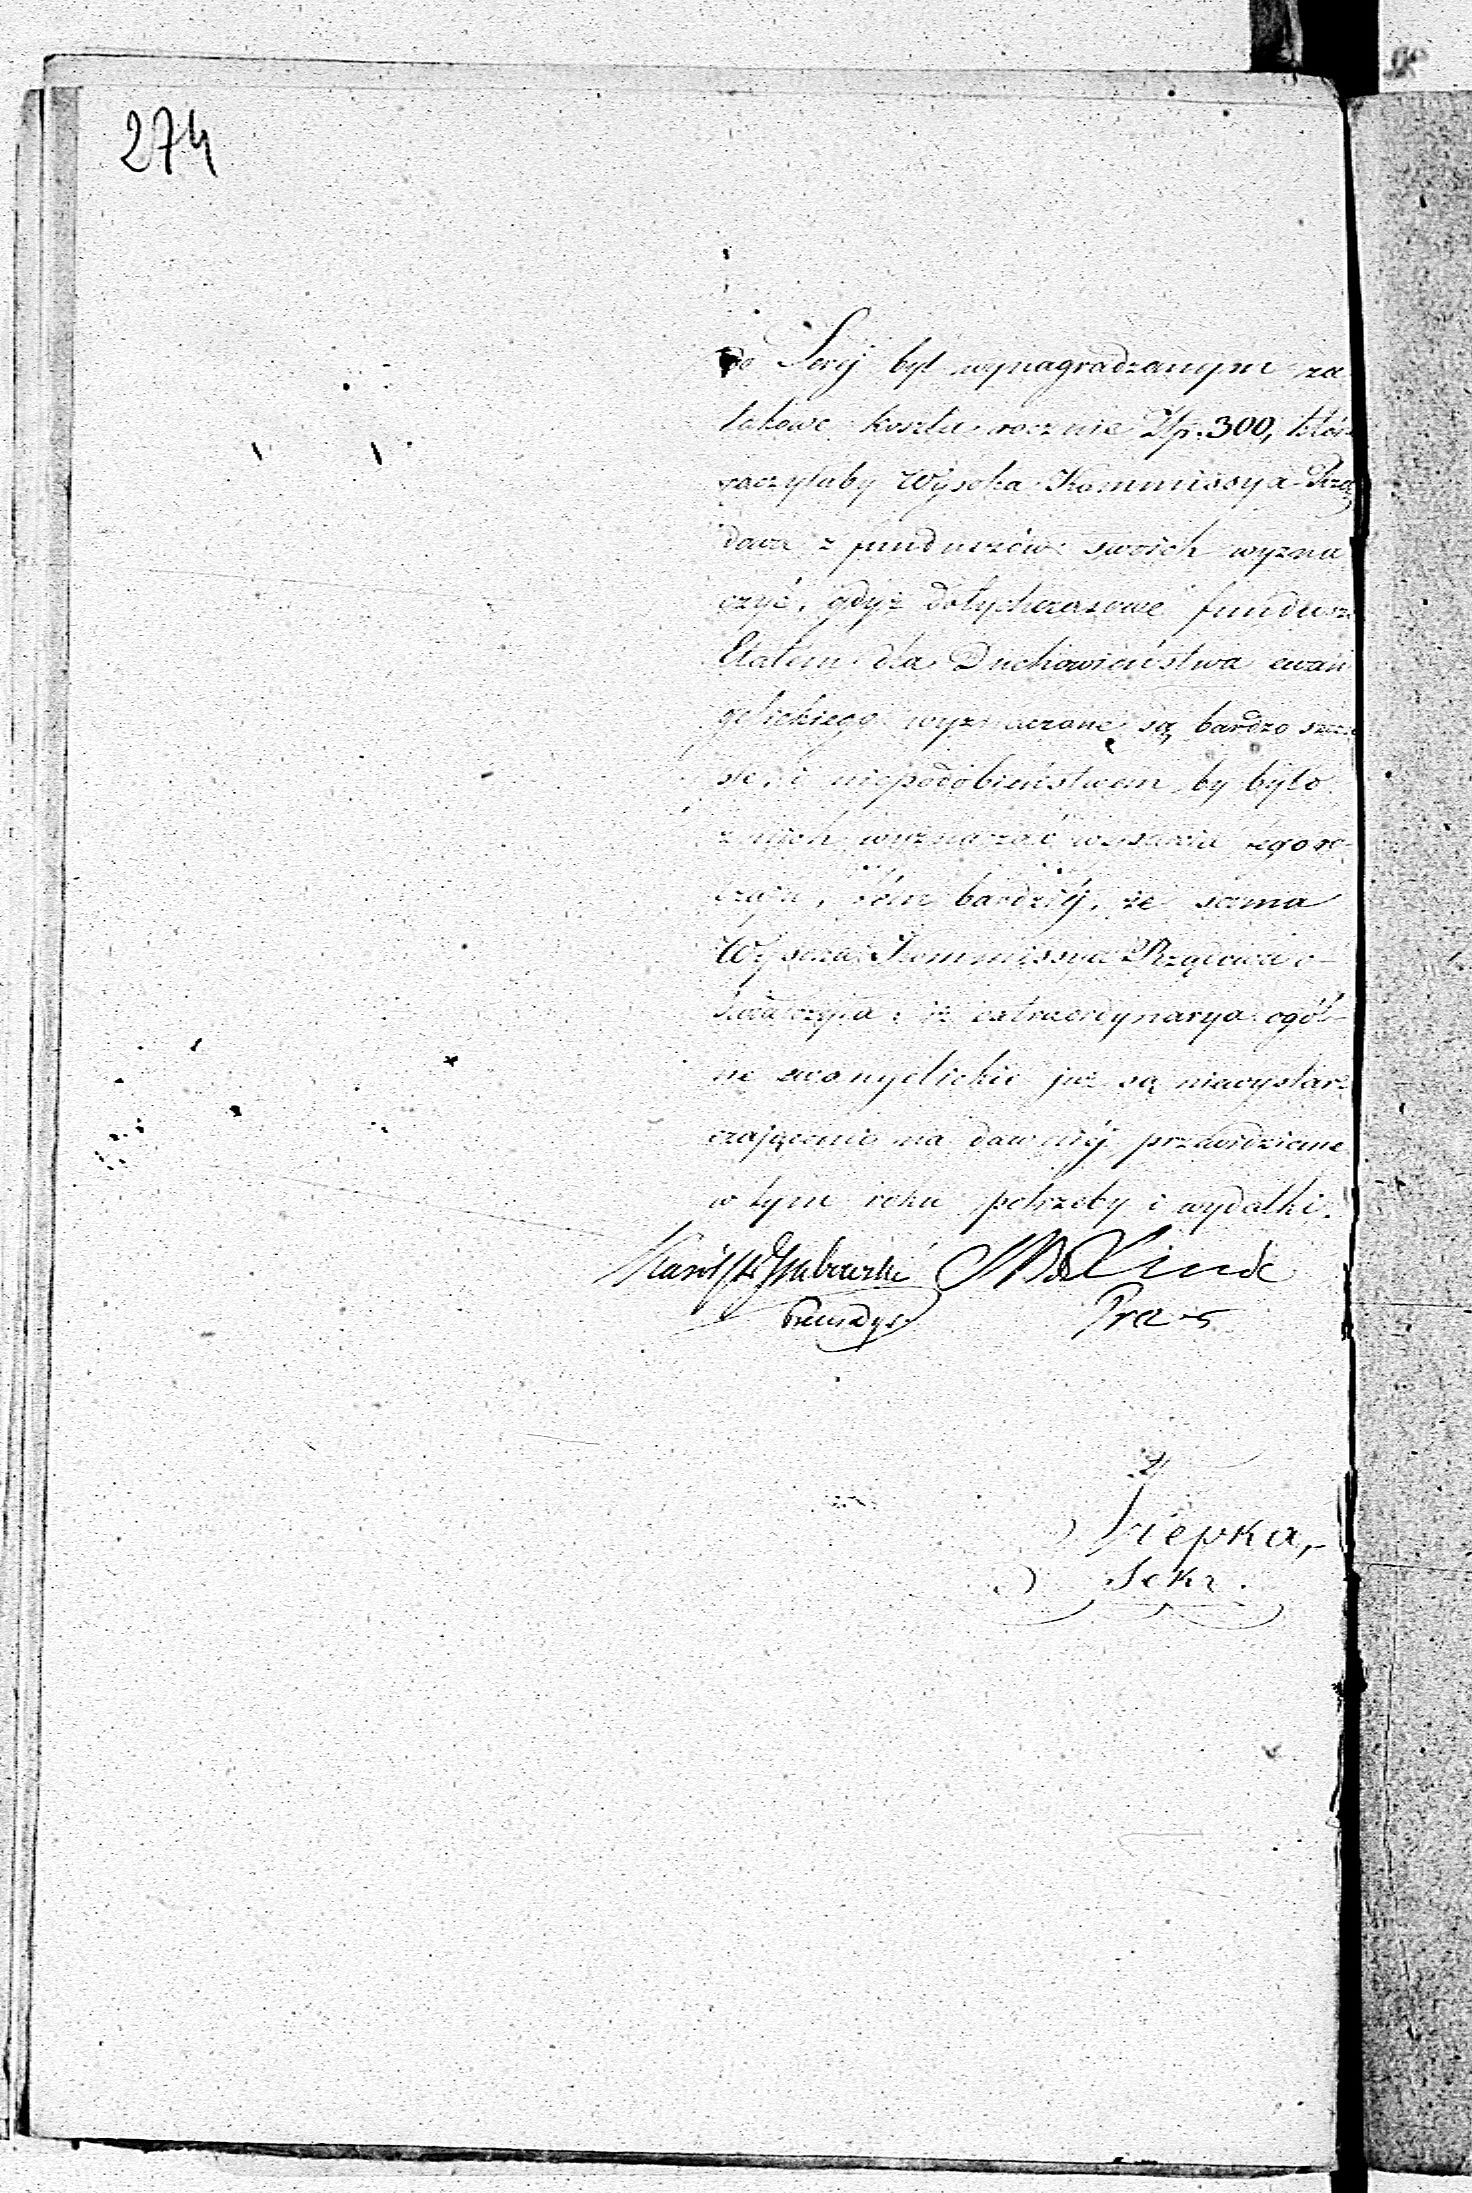 274
do Serej był wynagradzanym za
takowe koszta rocznie Złp. 300, któr
raczyłaby Wysoka Kommissya Rzą
dowa z funduszów swoich wyzna
czyć, gdyż dotychczasowe fundusze
Etatem dla Duchowieństwa ewan
gelickiego wyznaczone są bardzo szczu
łe, i niepodobieństwem by było
z nich wyznaczać wsparcia tego ro-
dzaju, tém bardziéj, że sama
Wysoka Kommissya Rządowa o-
świadczyła, iż extraordynarya ogól-
ne ewangelickie już są niewystar
czającemi na dawniéj przewidziane
w tym roku potrzeby i wydatki.
Linde
Prezes
Sekr.